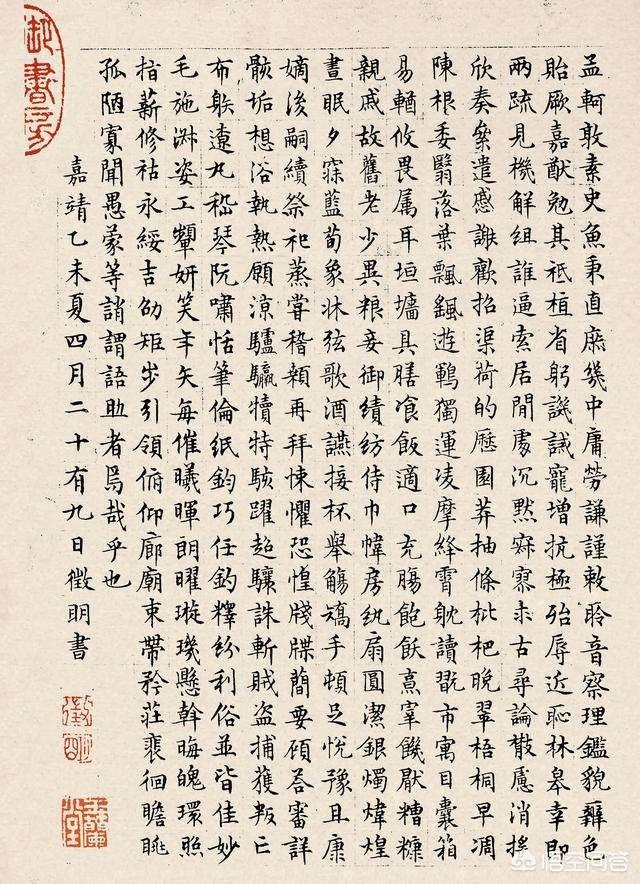 孟軻敦素史魚秉直庶幾中庸勞謙謹敕聆音察理鑑貌辯色
貽厥嘉猷勉其祗植省躬譏誡寵增抗極殆辱近恥林皋幸即
兩疏見機解組誰逼索居閒處沉默寂寥求古尋論散慮逍遙
欣奏累遣慼謝歡招渠荷的歷園莽抽條枇杷晚翠梧桐早凋
陳根委翳落葉飄颻遊鵾獨運凌摩絳霄耽讀翫市寓目囊箱
易輶攸畏属耳垣墻具膳飡飯適口充腸飽飫烹宰饑厭糟糠
親戚故舊老少異粮妾御績紡侍巾帷房紈扇圓潔銀燭煒煌
晝眠夕寐藍筍象牀弦歌酒讌接杯舉觴矯手頓足悅豫且康
嫡後嗣續祭祀蒸嘗稽顙再拜悚懼恐惶牋牒簡要顧荅審詳
骸垢想浴執熱願涼驢驘犢特駭躍超驤誅斬賊盜捕獲叛亡
布躲遼丸嵇琴阮嘯恬筆倫紙鈞巧任釣釋紛利俗並皆佳妙
毛施淑姿工顰妍笑年矢每催曦暉朗曜璇璣懸斡晦魄環照
指薪修祜永綏吉劭矩步引領俯仰廊廟束帶矜莊裴徊瞻眺
孤陋寡聞愚蒙等誚謂語助者焉哉乎也
嘉靖乙未夏四月二十有九日徵明書
御書房
徵明
玉蘭堂
悟空问答